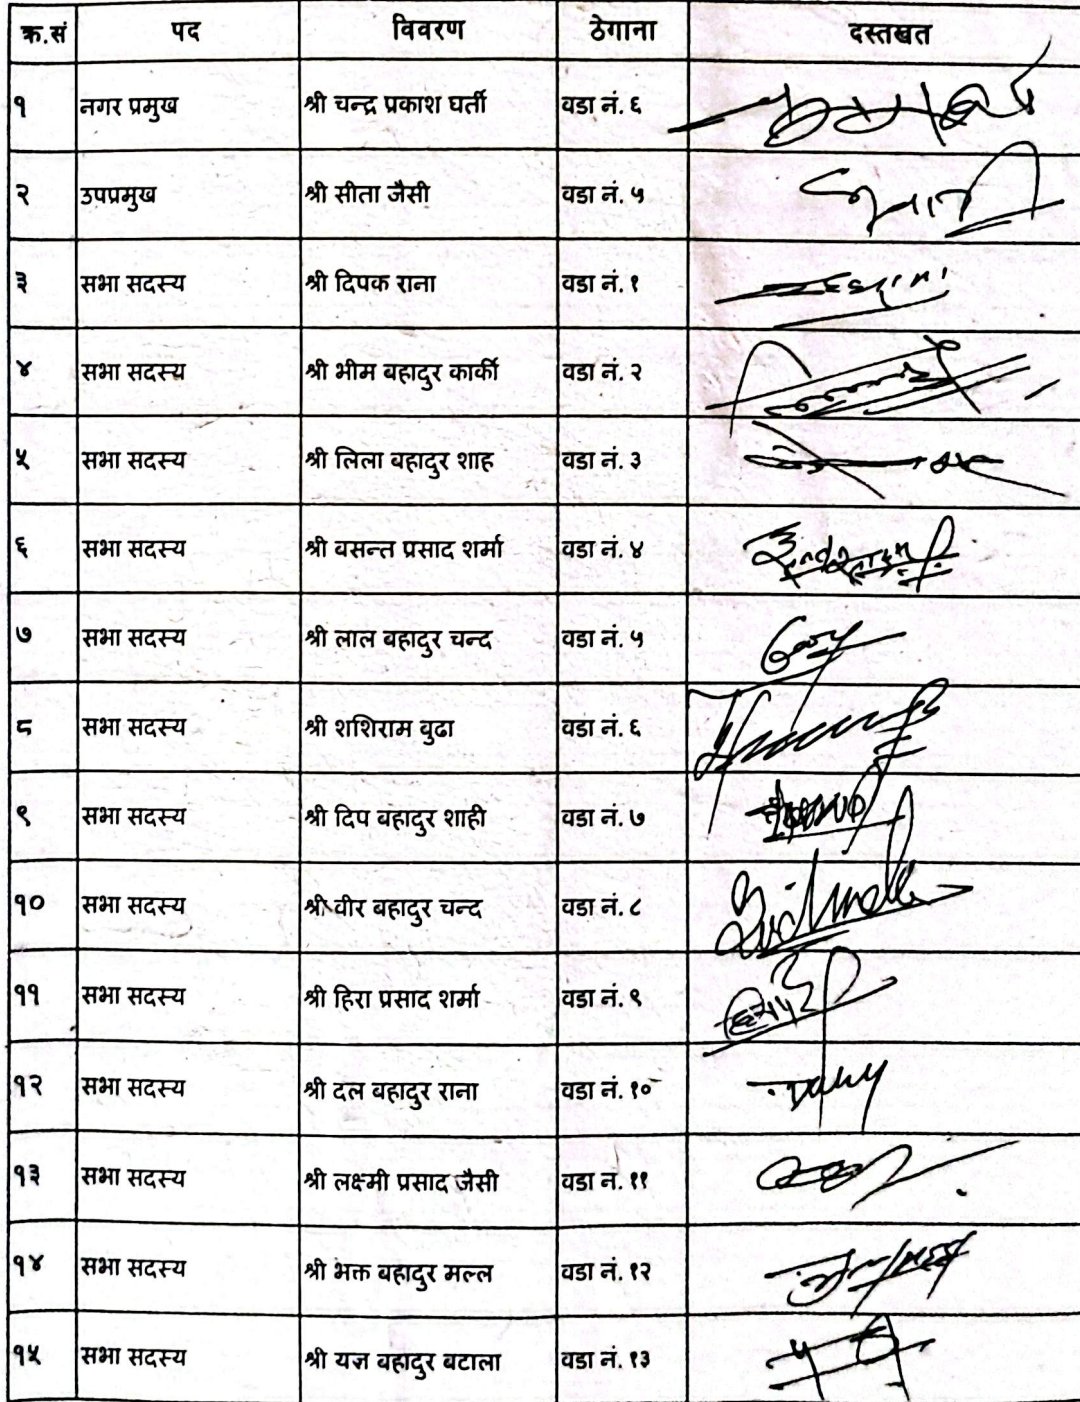 क्र.सं पद विवरण ठेगाना दस्तखत
१ नगर प्रमुख श्री चन्द्र प्रकाश घर्ती वडा नं. ६
२ उपप्रमुख श्री सीता जैसी वडा नं. ५
३ सभा सदस्य श्री दिपक राना वडा नं. १
४ सभा सदस्य श्री भीम बहादुर कार्की वडा नं. २
५ सभा सदस्य श्री लिला बहादुर शाह वडा नं. ३
६ सभा सदस्य श्री बसन्त प्रसाद शर्मा वडा नं. ४
७ सभा सदस्य श्री लाल बहादुर चन्द वडा नं. ५
८ सभा सदस्य श्री शशिराम बुढा वडा नं. ६
९ सभा सदस्य श्री दिप बहादुर शाही वडा नं. ७
१० सभा सदस्य श्री वीर बहादुर चन्द वडा नं. ८
११ सभा सदस्य श्री हिरा प्रसाद शर्मा वडा नं. ९
१२ सभा सदस्य श्री दल बहादुर राना वडा नं. १०
१३ सभा सदस्य श्री लक्ष्मी प्रसाद जैसी वडा नं. ११
१४ सभा सदस्य श्री भक्त बहादुर मल्ल वडा नं. १२
१५ सभा सदस्य श्री यज्ञ बहादुर बटाला वडा नं. १३